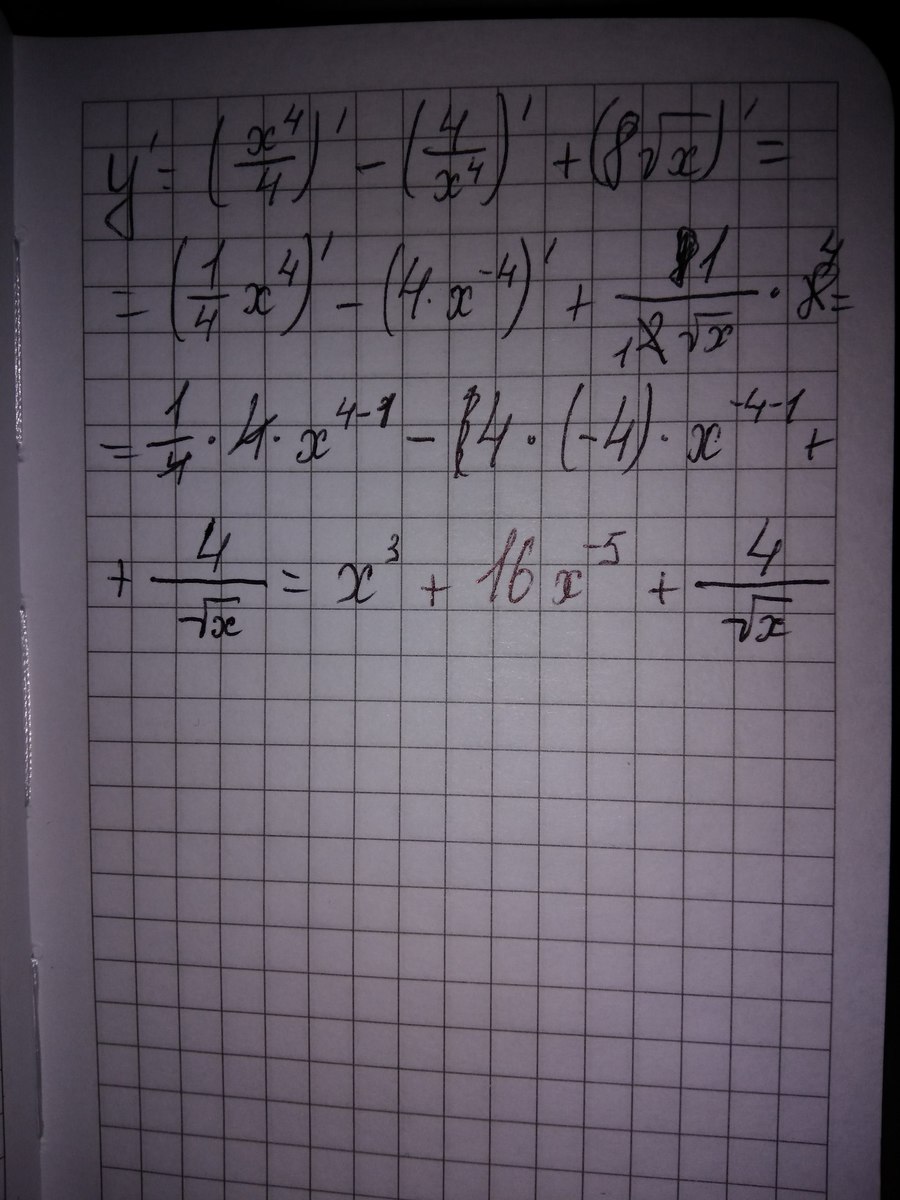 y' = (x⁴/4)' - (4/x⁴)' + (8√x)' =
= (1/4 x⁴)' - (4·x⁻⁴)' + 1/(2√x) · 8 =
= 1/4 · 4 · x⁴⁻¹ - 4 · (-4) · x⁻⁴⁻¹ +
+ 4/√x = x³ + 16x⁻⁵ + 4/√x